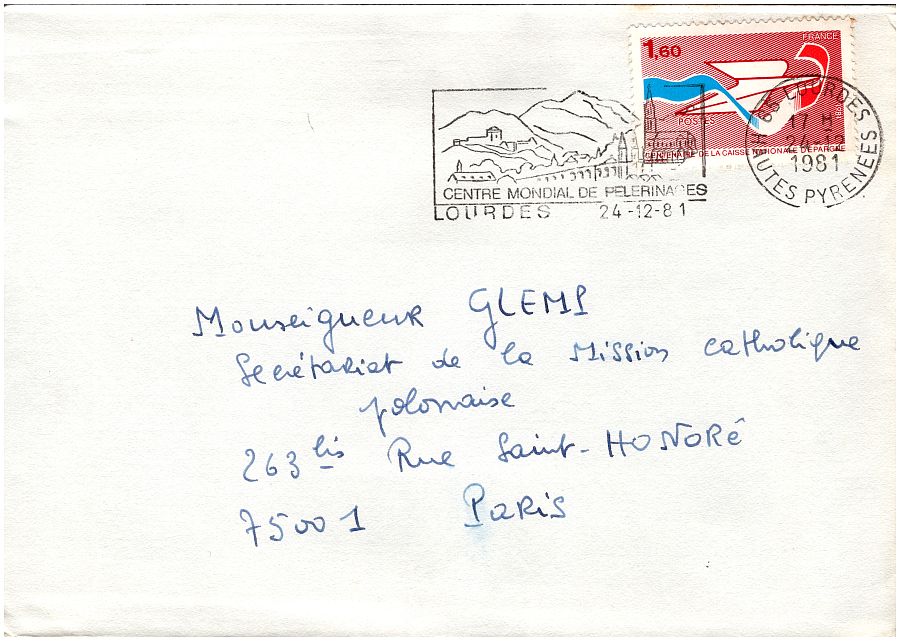 1,60
FRANCE
POSTES
CENTENAIRE DE LA CAISSE NATIONALE D'EPARGNE
CENTRE MONDIAL DE PELERINAGES
LOURDES 24-12-81
65 LOURDES
17 H
24-12
1981
HAUTES PYRENEES
Monseigneur GLEMP
Secrétariat de la Mission catholique
polonaise
263 bis Rue Saint-HONORÉ
75001 PARIS